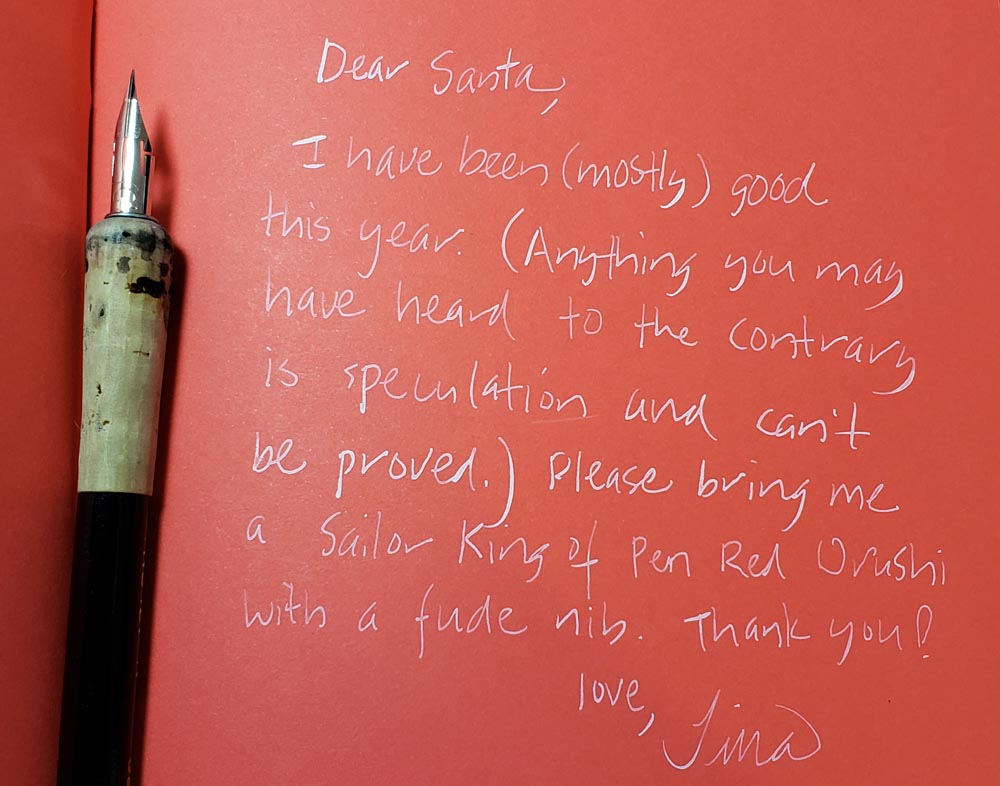 Dear Santa,
I have been (mostly) good
this year. (Anything you may
have heard to the contrary
is speculation and can't
be proved.) Please bring me
a Sailor King of Pen Red Urushi
with a fude nib. Thank you!
love,
Tina